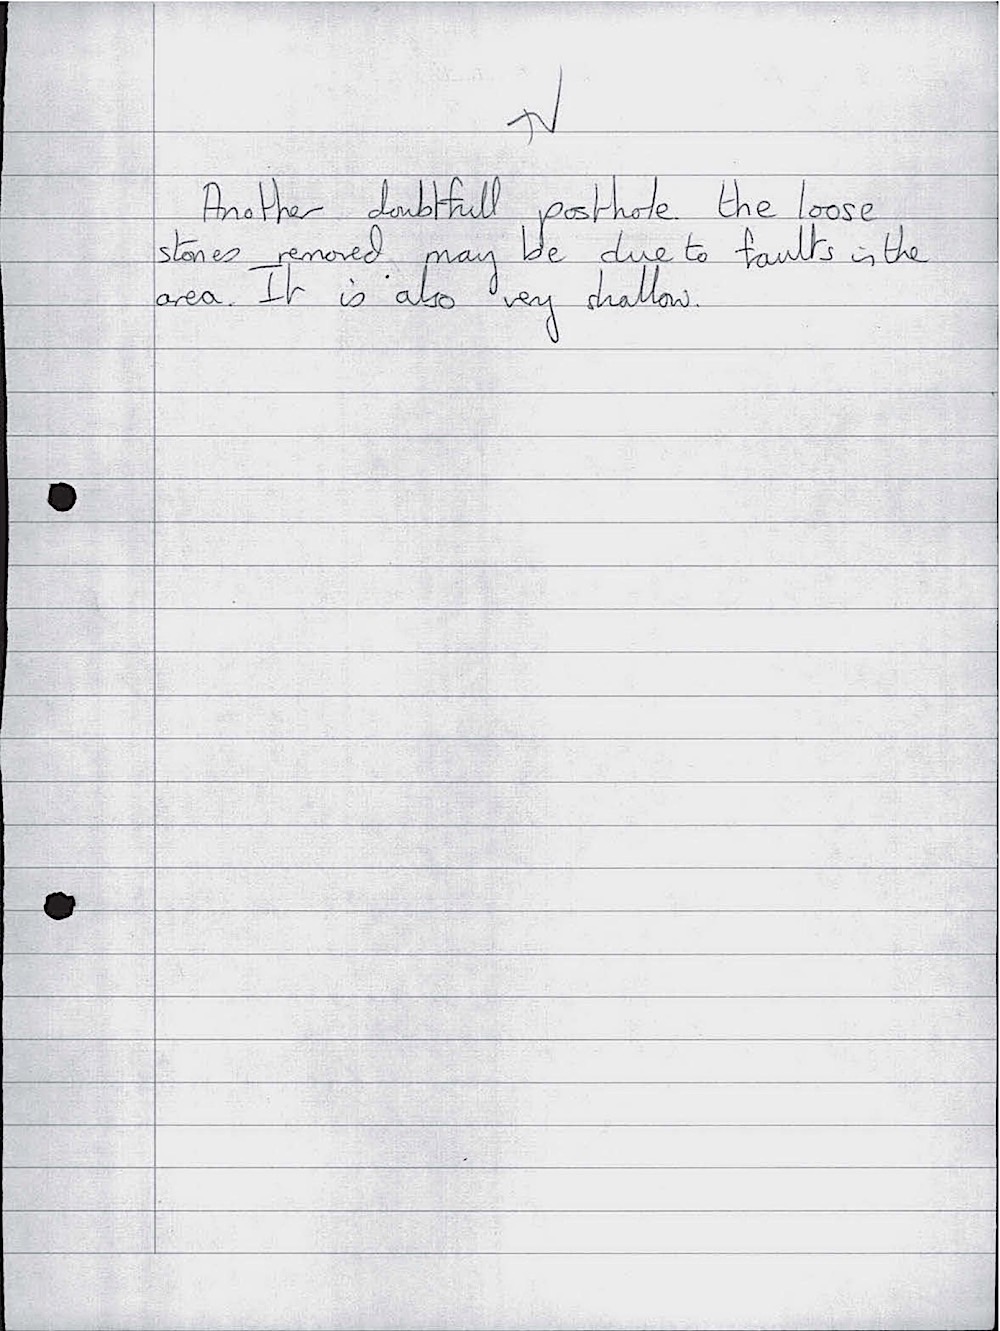 Another doubtfull posthole. the loose
stones removed may be due to faults in the
area. It is also very shallow.